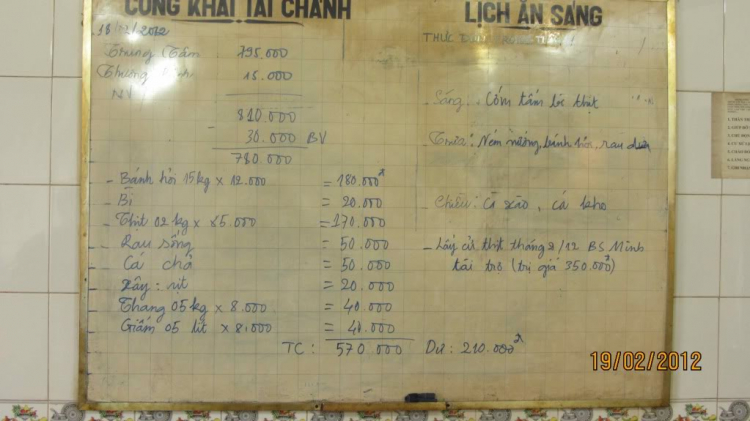 CÔNG KHAI TÀI CHÁNH
18/2/2012
Trung Tâm 795.000
Thương 15.000
NV
810.000
- 30.000 BV
780.000
- Bánh hỏi 15kg x 12.000 = 180.000đ
- Bì = 20.000
- Thịt 02 kg x 85.000 = 170.000
- Rau sống = 50.000
- Cá chả = 50.000
- Xây: rit = 20.000
- Thang 05 kg x 8.000 = 40.000
- Giấm 05 lit x 8.000 = 40.000
TC: 570 000 Dư: 210.000đ
LỊCH ĂN SÁNG
THỰC
- Sáng: Cơm tấm bì thịt
- Trưa: Nem nướng, bánh hỏi, rau dưa
- Chiều: xào, cá kho
- Lấy thịt tháng 2/12 BS Minh
tài trợ (trị giá 350.000đ)
19/02/2012